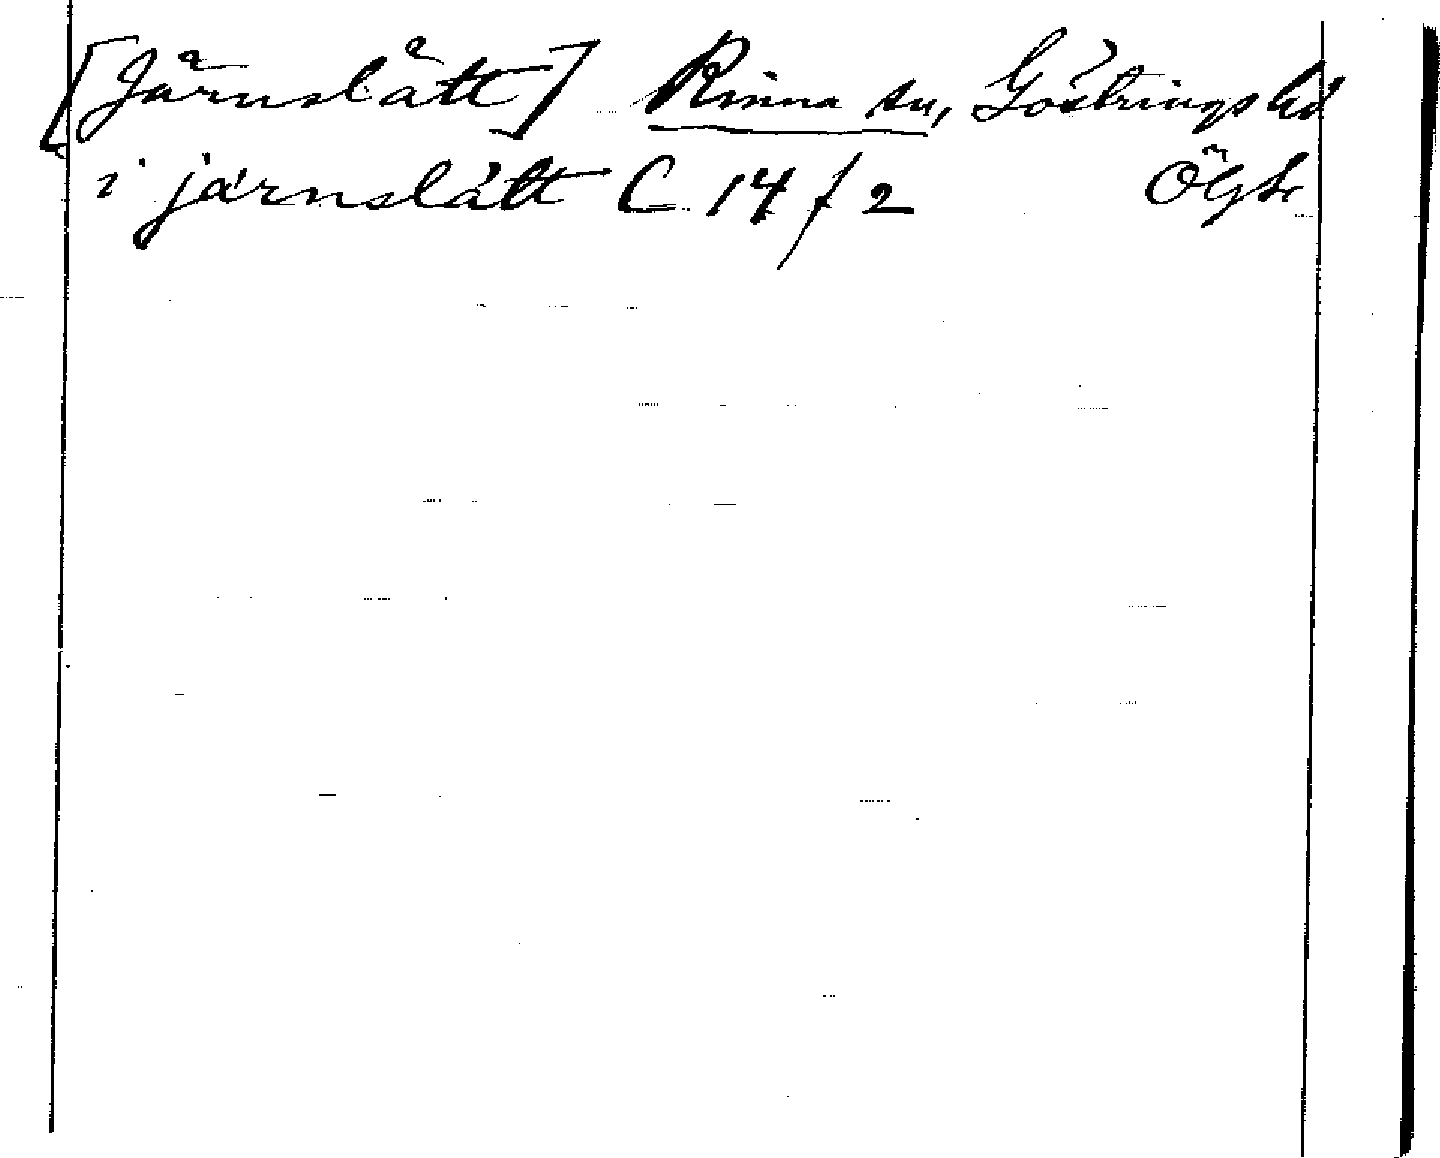 [Järnslätt] Rinna sn, Göstrings hd
i järnslätt C 14 f 2 Ögtl